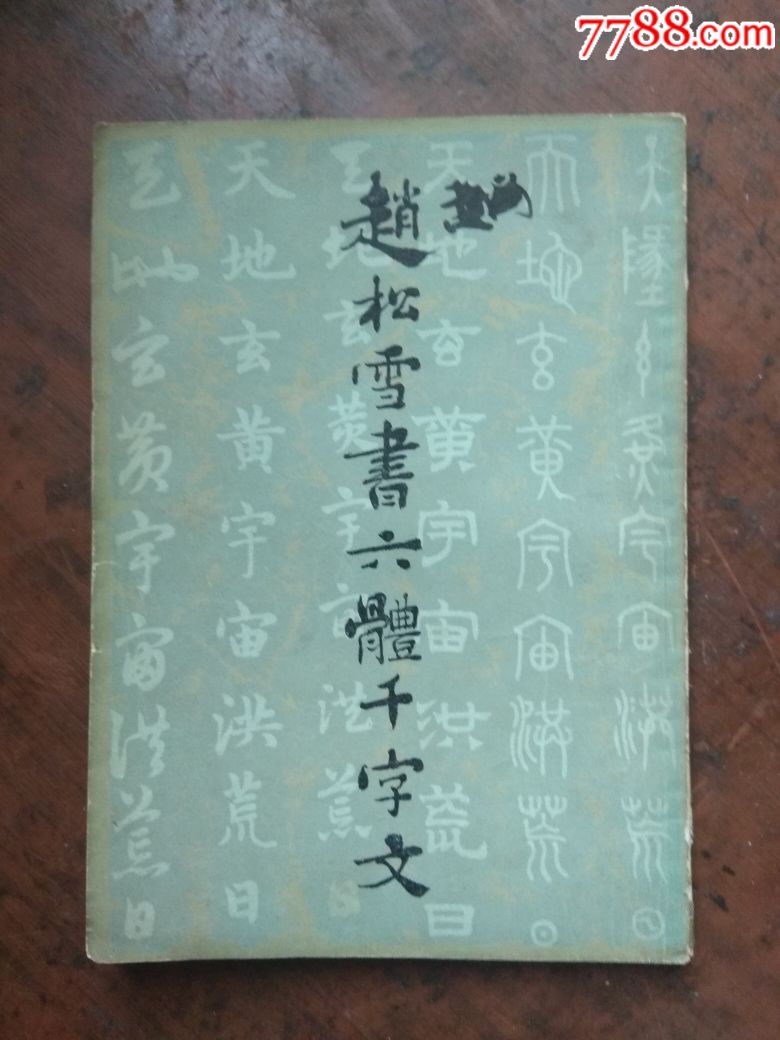 7788.com
天墬玄黃宇宙洪荒日
天地玄黃宇宙洪荒日
天地玄黃宇宙洪荒日
趙松雪書六體千字文
天地玄黃宇宙洪荒日
天地玄黃宇宙洪荒日
天地玄黃宇宙洪荒日